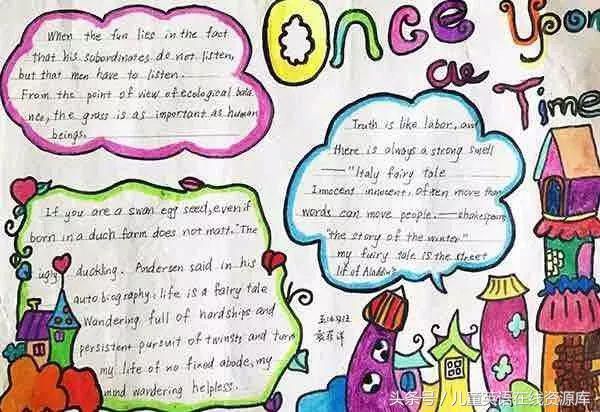 Once Upon
a
Time
When the fun lies in the fact
that his subordinates do not listen,
but that men have to listen.
From the point of view of ecological bala
nce, the grass is as important as human
beings.
Truth is like labor, an
there is always a strong smell
—"Italy fairy tale
Innocent innocent, often more than
words can move people. — shakespeare
"the story of the winter"
my fairy tale is the street
lit of Aladdin"
If you are a swan egg seed, even if
born in a duch farm does not matt. "The
ugly duckling. Andersen said in his
autobiography: life is a fairy tale
Wandering full of hardships and
persistent pursuit of twinsts and turn
my life of no fixed abode, my
mind wandering helpless.
头条号／儿童英语在线资源库